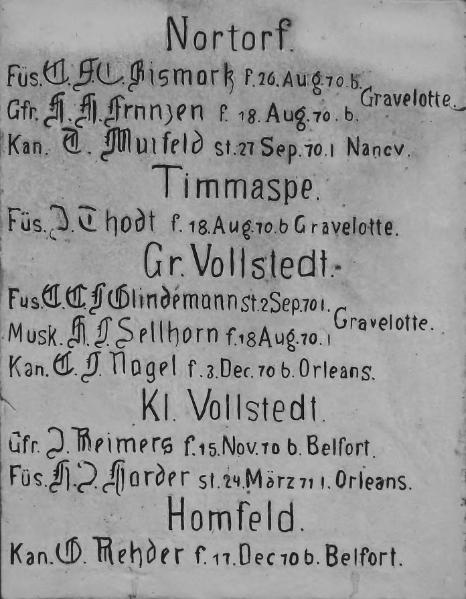 Nortorf.
Füs. C. F. C. Bismark f. 26. Aug. 70. b.
Gfr. H. H. Frnnzen f. 18. Aug. 70. b. Gravelotte.
Kan. T. Muifeld st. 27 Sep. 70. i Nancy.
Timmaspe.
Füs. J. Thodt f. 18. Aug. 70. b Gravelotte.
Gr. Vollstedt.-
Fus. C. C. F Glindemann st. 2 Sep. 70 i.
Musk. H. J. Sellhorn f. 18 Aug. 70. i Gravelotte.
Kan. C. J. Nagel f. 3. Dec. 70 b. Orleans.
Kl. Vollstedt.
Gfr. J. Reimers f. 15. Nov. 70 b. Belfort.
Füs. H. J. Harder st. 24. März 71 i. Orleans.
Homfeld.
Kan. G. Rehder f. 17. Dec 70 b. Belfort.